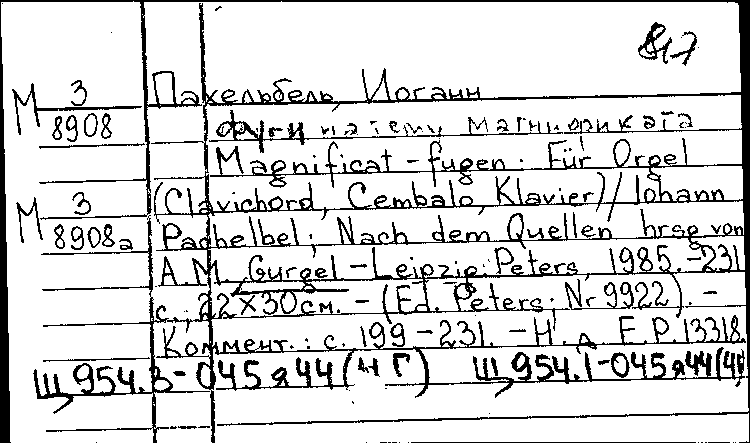 М 3 Пахельбель, Иоганн
8908 Фуги на тему магнификата
Magnificat-fugen: Für Orgel
М 3 (Clavichord, Cembalo, Klavier)/ Johann
8908а Pachelbel; Nach dem Quellen hrsg von
A.M. Gurgel - Leipzig: Peters, 1985. - 231
с.; 22×30см. - (Ed. Peters; Nr 9922). -
Коммент.: с. 199-231. - Н. д. E.P. 13318.
Щ954.3-045я44(4Г) Щ954.1-045я44(4Г)